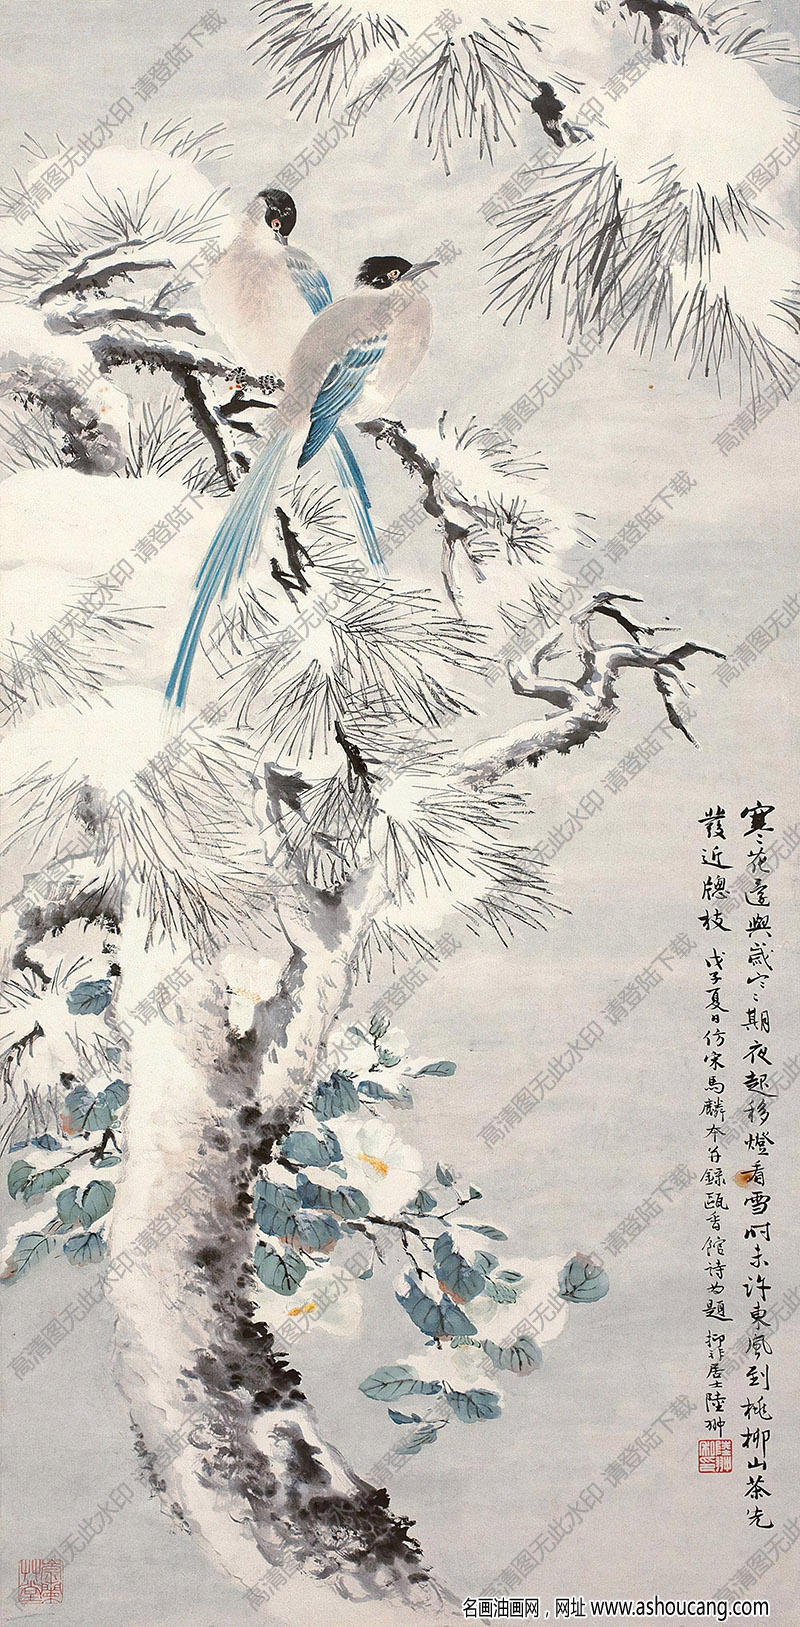 寒花还與歲寒期夜起移燈看雪时未许東風到桃柳山茶先
發近牕枝 戊子夏日仿宋馬麟本并録甌香館诗为題 抑非居士陸翀
名画油画网，网址 www.ashoucang.com
高清图无此水印 请登陆下载